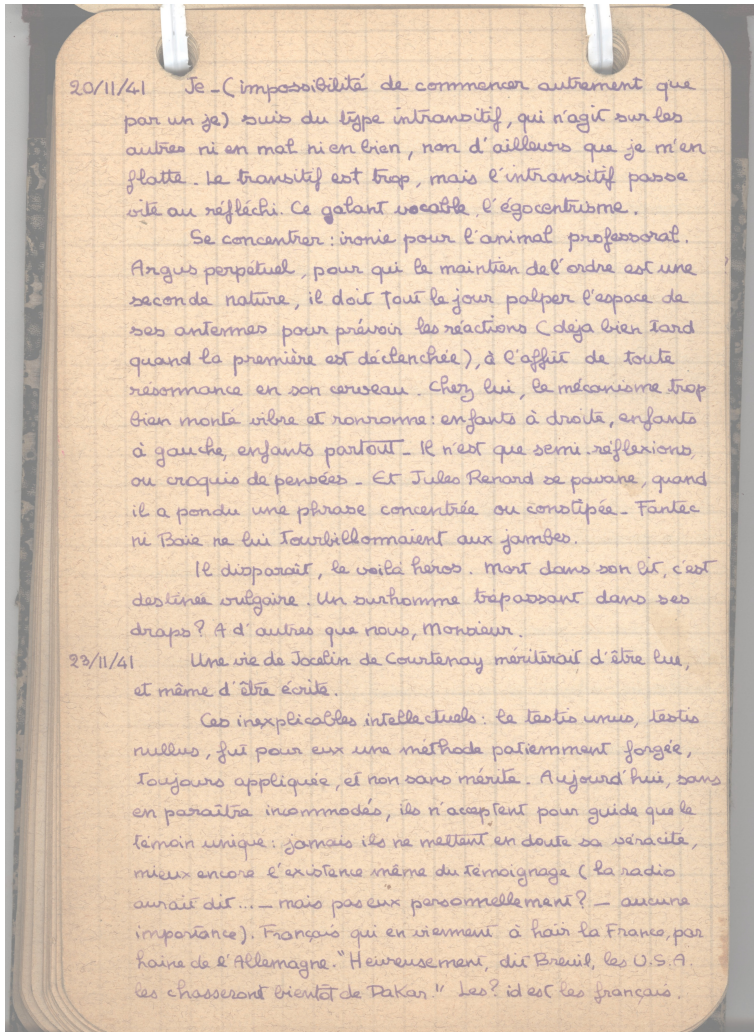 20/11/41 Je - (impossibilité de commencer autrement que
par un je) suis du type intransitif, qui n'agit sur les
autres ni en mal ni en bien, non d'ailleurs que je m'en
flatte. Le transitif est trop, mais l'intransitif passe
vite au réfléchi. Ce galant vocable, l'égocentrisme.
Se concentrer : ironie pour l'animal professoral.
Argus perpétuel, pour qui le maintien de l'ordre est une
seconde nature, il doit tout le jour palper l'espace de
ses antennes pour prévoir les réactions (déja bien tard
quand la première est déclenchée), à l'affût de toute
résonnance en son cerveau. Chez lui, le mécanisme trop
bien monté vibre et ronronne : enfants à droite, enfants
à gauche, enfants partout - Il n'est que semi-réflexions,
ou croquis de pensées - Et Jules Renard se pavane, quand
il a pondu une phrase concentrée ou constipée - Fantec
ni Baïe ne lui tourbillonnaient aux jambes.
Il disparaît, le voilà héros. Mort dans son lit, c'est
destinée vulgaire. Un surhomme trépassant dans ses
draps? A d'autres que nous, Monsieur.
23/11/41 Une vie de Jocelin de Courtenay mériterait d'être lue,
et même d'être écrite.
Ces inexplicables intellectuels : le testis unus, testis
nullus, fut pour eux une méthode patiemment forgée,
toujours appliquée, et non sans mérite. Aujourd'hui, sans
en paraître incommodés, ils n'acceptent pour guide que le
témoin unique : jamais ils ne mettent en doute sa véracité,
mieux encore l'existence même du témoignage (la radio
aurait dit... - mais pas eux personnellement? - aucune
importance). Français qui en viennent à haïr la France, par
haine de l'Allemagne. "Heureusement, dit Breuil, les U.S.A.
les chasseront bientôt de Dakar." Les? id est les français.